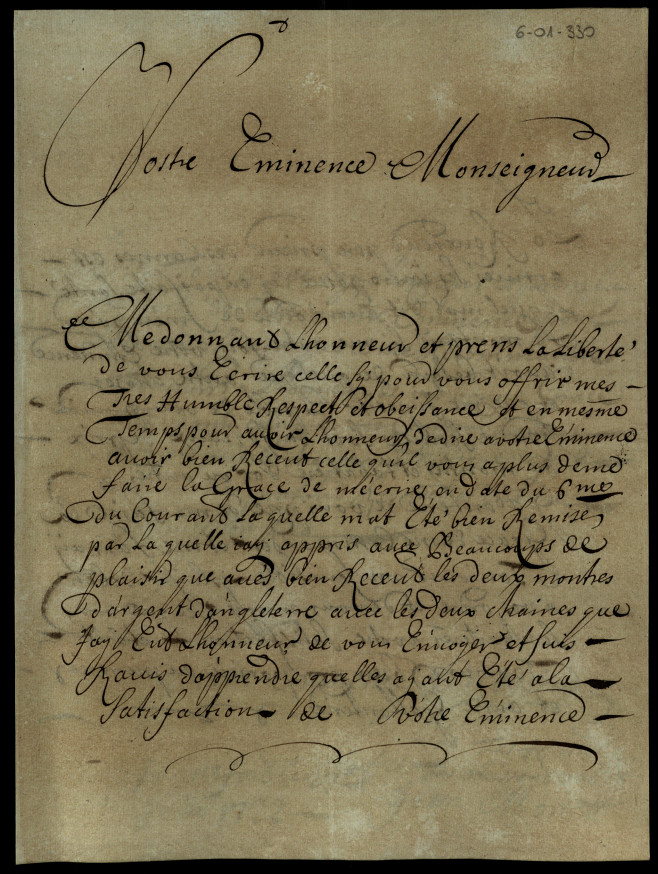 6-01-330
Vostre Eminence Monseigneur
Me donnant Lhonneur et prens La Liberté
de vous Ecrire celle sy pour vous offrir mes
Tres Humble Respect et obeissance et en mesme
Temps pour avoir Lhonneur de dire a votre Eminence
avoir bien Receut celle quil vous a plus de me
faire la Grace de mécrire en date du 6me
du Courant La quelle mat Eté bien Remise
par La quelle jay appris avec Beaucoups de
plaisir que avés bien Receut les deux montres
dargent dangleterre avec les deux chaines que
Jay Eut Lhonneur de vous Envoyer et suis
Ravis dapprendre quelles ayant Eté a la
Satisfaction de Votre Eminence